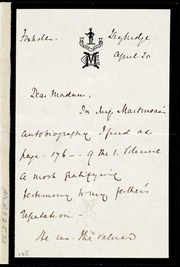 Foxholes. Weybridge
M April 20
Dear Madam,
In Miss Martineau's
autobiography I find at
page 176 - of the 1. Volume
a most gratifying
testimony to my father's
reputation -
He was the valued